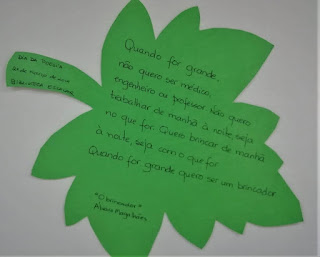 DIA DA POESIA
21 de março de 2018
BIBLIOTECA ESCOLAR
Quando for grande,
não quero ser médico,
engenheiro ou professor. Não quero
trabalhar de manhã à noite, seja
no que for. Quero brincar de manhã
à noite, seja com o que for.
Quando for grande quero ser um brincador
"O brincador"
Álvaro Magalhães